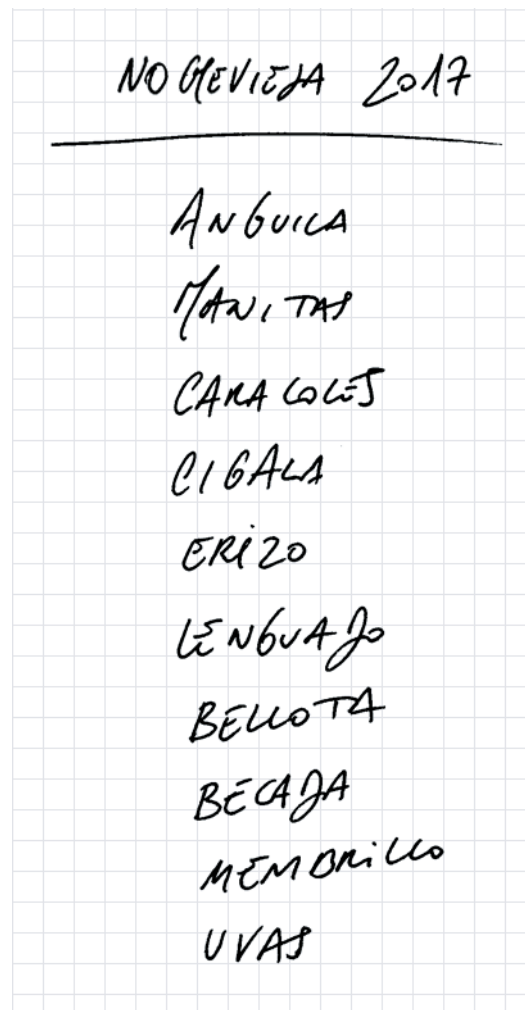 NOCHEVIEJA 2017
ANGUILA
MANITAS
CARACOLES
CIGALA
ERIZO
LENGUADO
BELLOTA
BECADA
MEMBRILLO
UVAS